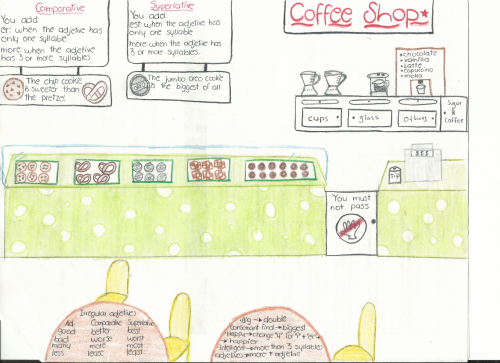 Comparative
You add:
er: when the adjetive has
only one syllable
more when the adjetive
has 3 or more syllables
The chip cookie
is sweeter than
the pretzel
Superlative
You add:
est: when the adjetive has
only one syllable
more when the adjetive has
3 or more syllables.
The jumbo oreo cookie
is the biggest of all
Coffee Shop
•chocolate
•vainilla
•Latte
•capuccino
•moka
cups
glass
others
sugar
&
coffee
You must
not pass
TIP
Irregular adjetives
Adj Comparative Superlative
good better best
bad worse worst
many more most
less least
•Big → double
consonant final → biggest
•Happy → change "y" for "i" + "er" →
happier
Intelligent → more than 3 syllables
adjetives → more + adjetive